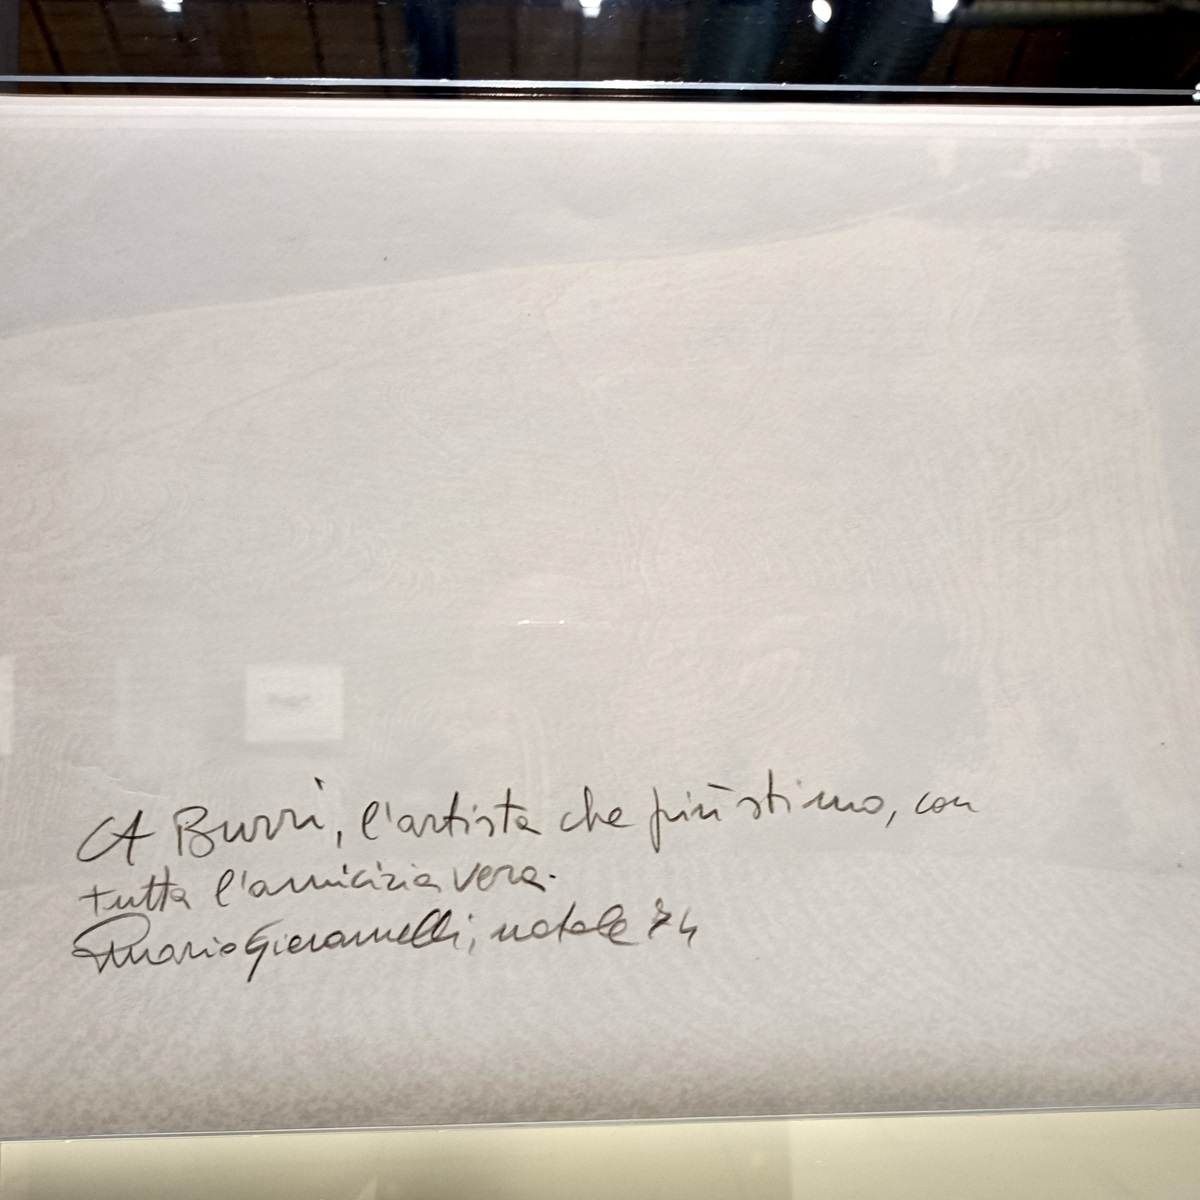 A Burri, l'artista che più stimo, con
tutta l'amicizia vera.
Mario Giacomelli, natale 84